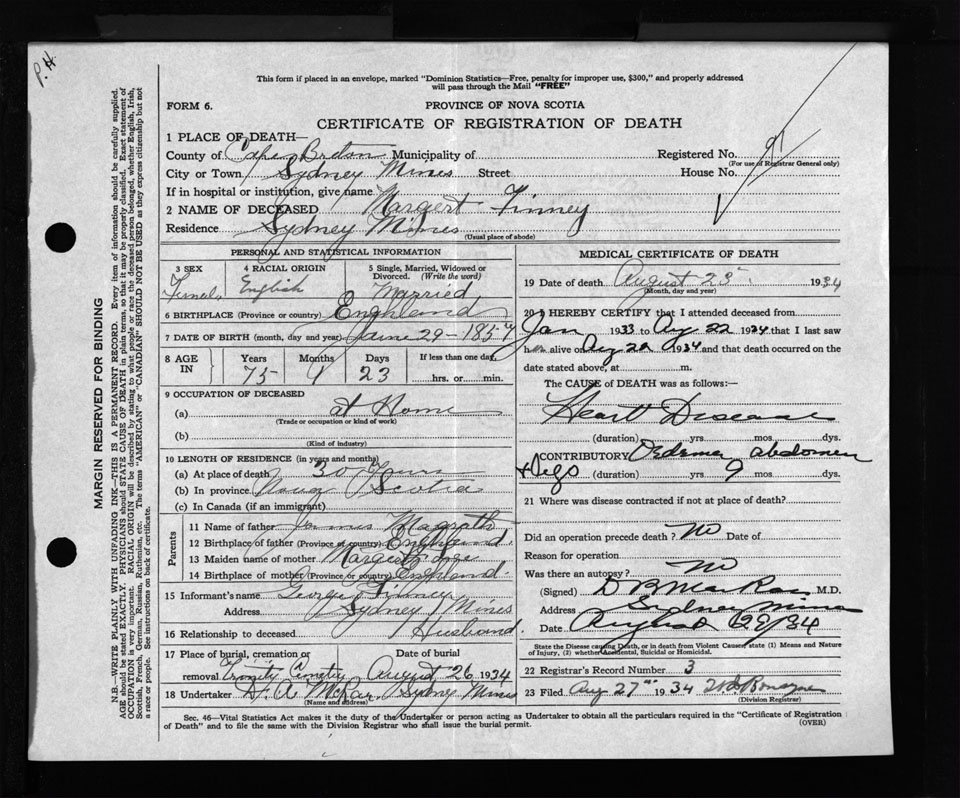 P.H.
This form if placed in an envelope, marked "Dominion Statistics—Free, penalty for improper use, $300," and properly addressed
will pass through the Mail "FREE"
FORM 6.
PROVINCE OF NOVA SCOTIA
CERTIFICATE OF REGISTRATION OF DEATH
1 PLACE OF DEATH—
County of Cape Breton Municipality of Registered No.
(For use of Registrar General only)
City or Town Sydney Mines Street House No.
If in hospital or institution, give name
2 NAME OF DECEASED Margert Finney
Residence Sydney Mines
(Usual place of abode)
PERSONAL AND STATISTICAL INFORMATION
3 SEX 4 RACIAL ORIGIN 5 Single, Married, Widowed or Divorced. (Write the word)
Female English Married
6 BIRTHPLACE (Province or country) Enghland
7 DATE OF BIRTH (month, day and year) 29 - 185
8 AGE IN Years Months Days If less than one day,
75 1 23 hrs. or min.
9 OCCUPATION OF DECEASED
(a) at Home
(Trade or occupation or kind of work)
(b)
(Kind of industry)
10 LENGTH OF RESIDENCE (in years and months)
(a) At place of death 30 Years
(b) In province Scotia
(c) In Canada (if an immigrant)
Parents
11 Name of father
12 Birthplace of father (Province or country) Enghland
13 Maiden name of mother
14 Birthplace of mother (Province or country) Enghland
15 Informant's name George Finney
Address Sydney Mines
16 Relationship to deceased Husband
17 Place of burial, cremation or removal Date of burial
Trinity August 26 1934
18 Undertaker D. A. McRae Sydney Mines
(Name and address)
MEDICAL CERTIFICATE OF DEATH
19 Date of death August 23 1934
(Month, day and year)
20 I HEREBY CERTIFY that I attended deceased from
Jan 1933 to Aug 22 1934 that I last saw
h alive on Aug 22 1934 and that death occurred on the
date stated above, at m.
The CAUSE of DEATH was as follows:—
Heart Disease
(duration) yrs. mos. dys.
CONTRIBUTORY Oedema abdomen
+ legs (duration) yrs 9 mos. dys.
21 Where was disease contracted if not at place of death?
Did an operation precede death? No Date of
Reason for operation
Was there an autopsy? No
(Signed) M.D.
Address Sydney Mines
Date August 34
State the Disease causing Death, or in death from Violent Causes, state (1) Means and Nature
of Injury, (2) whether Accidental, Suicidal or Homicidal.
22 Registrar's Record Number 3
23 Filed Aug 27 1934
(Division Registrar)
Sec. 46—Vital Statistics Act makes it the duty of the Undertaker or person acting as Undertaker to obtain all the particulars required in the "Certificate of Registration
of Death" and to file the same with the Division Registrar who shall issue the burial permit.
(OVER)
MARGIN RESERVED FOR BINDING
N.B.—WRITE PLAINLY WITH UNFADING INK—THIS IS A PERMANENT RECORD. Every item of information should be carefully supplied.
AGE should be stated EXACTLY. PHYSICIANS should STATE CAUSE OF DEATH in plain terms, so that it may be properly classified. Exact statement of
OCCUPATION is very important. RACIAL ORIGIN will be described by stating to what people or race the deceased person belonged, whether English, Irish,
Scottish, French, German, Russian, Ruthenian, etc. The terms "AMERICAN" or "CANADIAN" SHOULD NOT BE USED as they express citizenship but not
a race or people. See instructions on back of certificate.